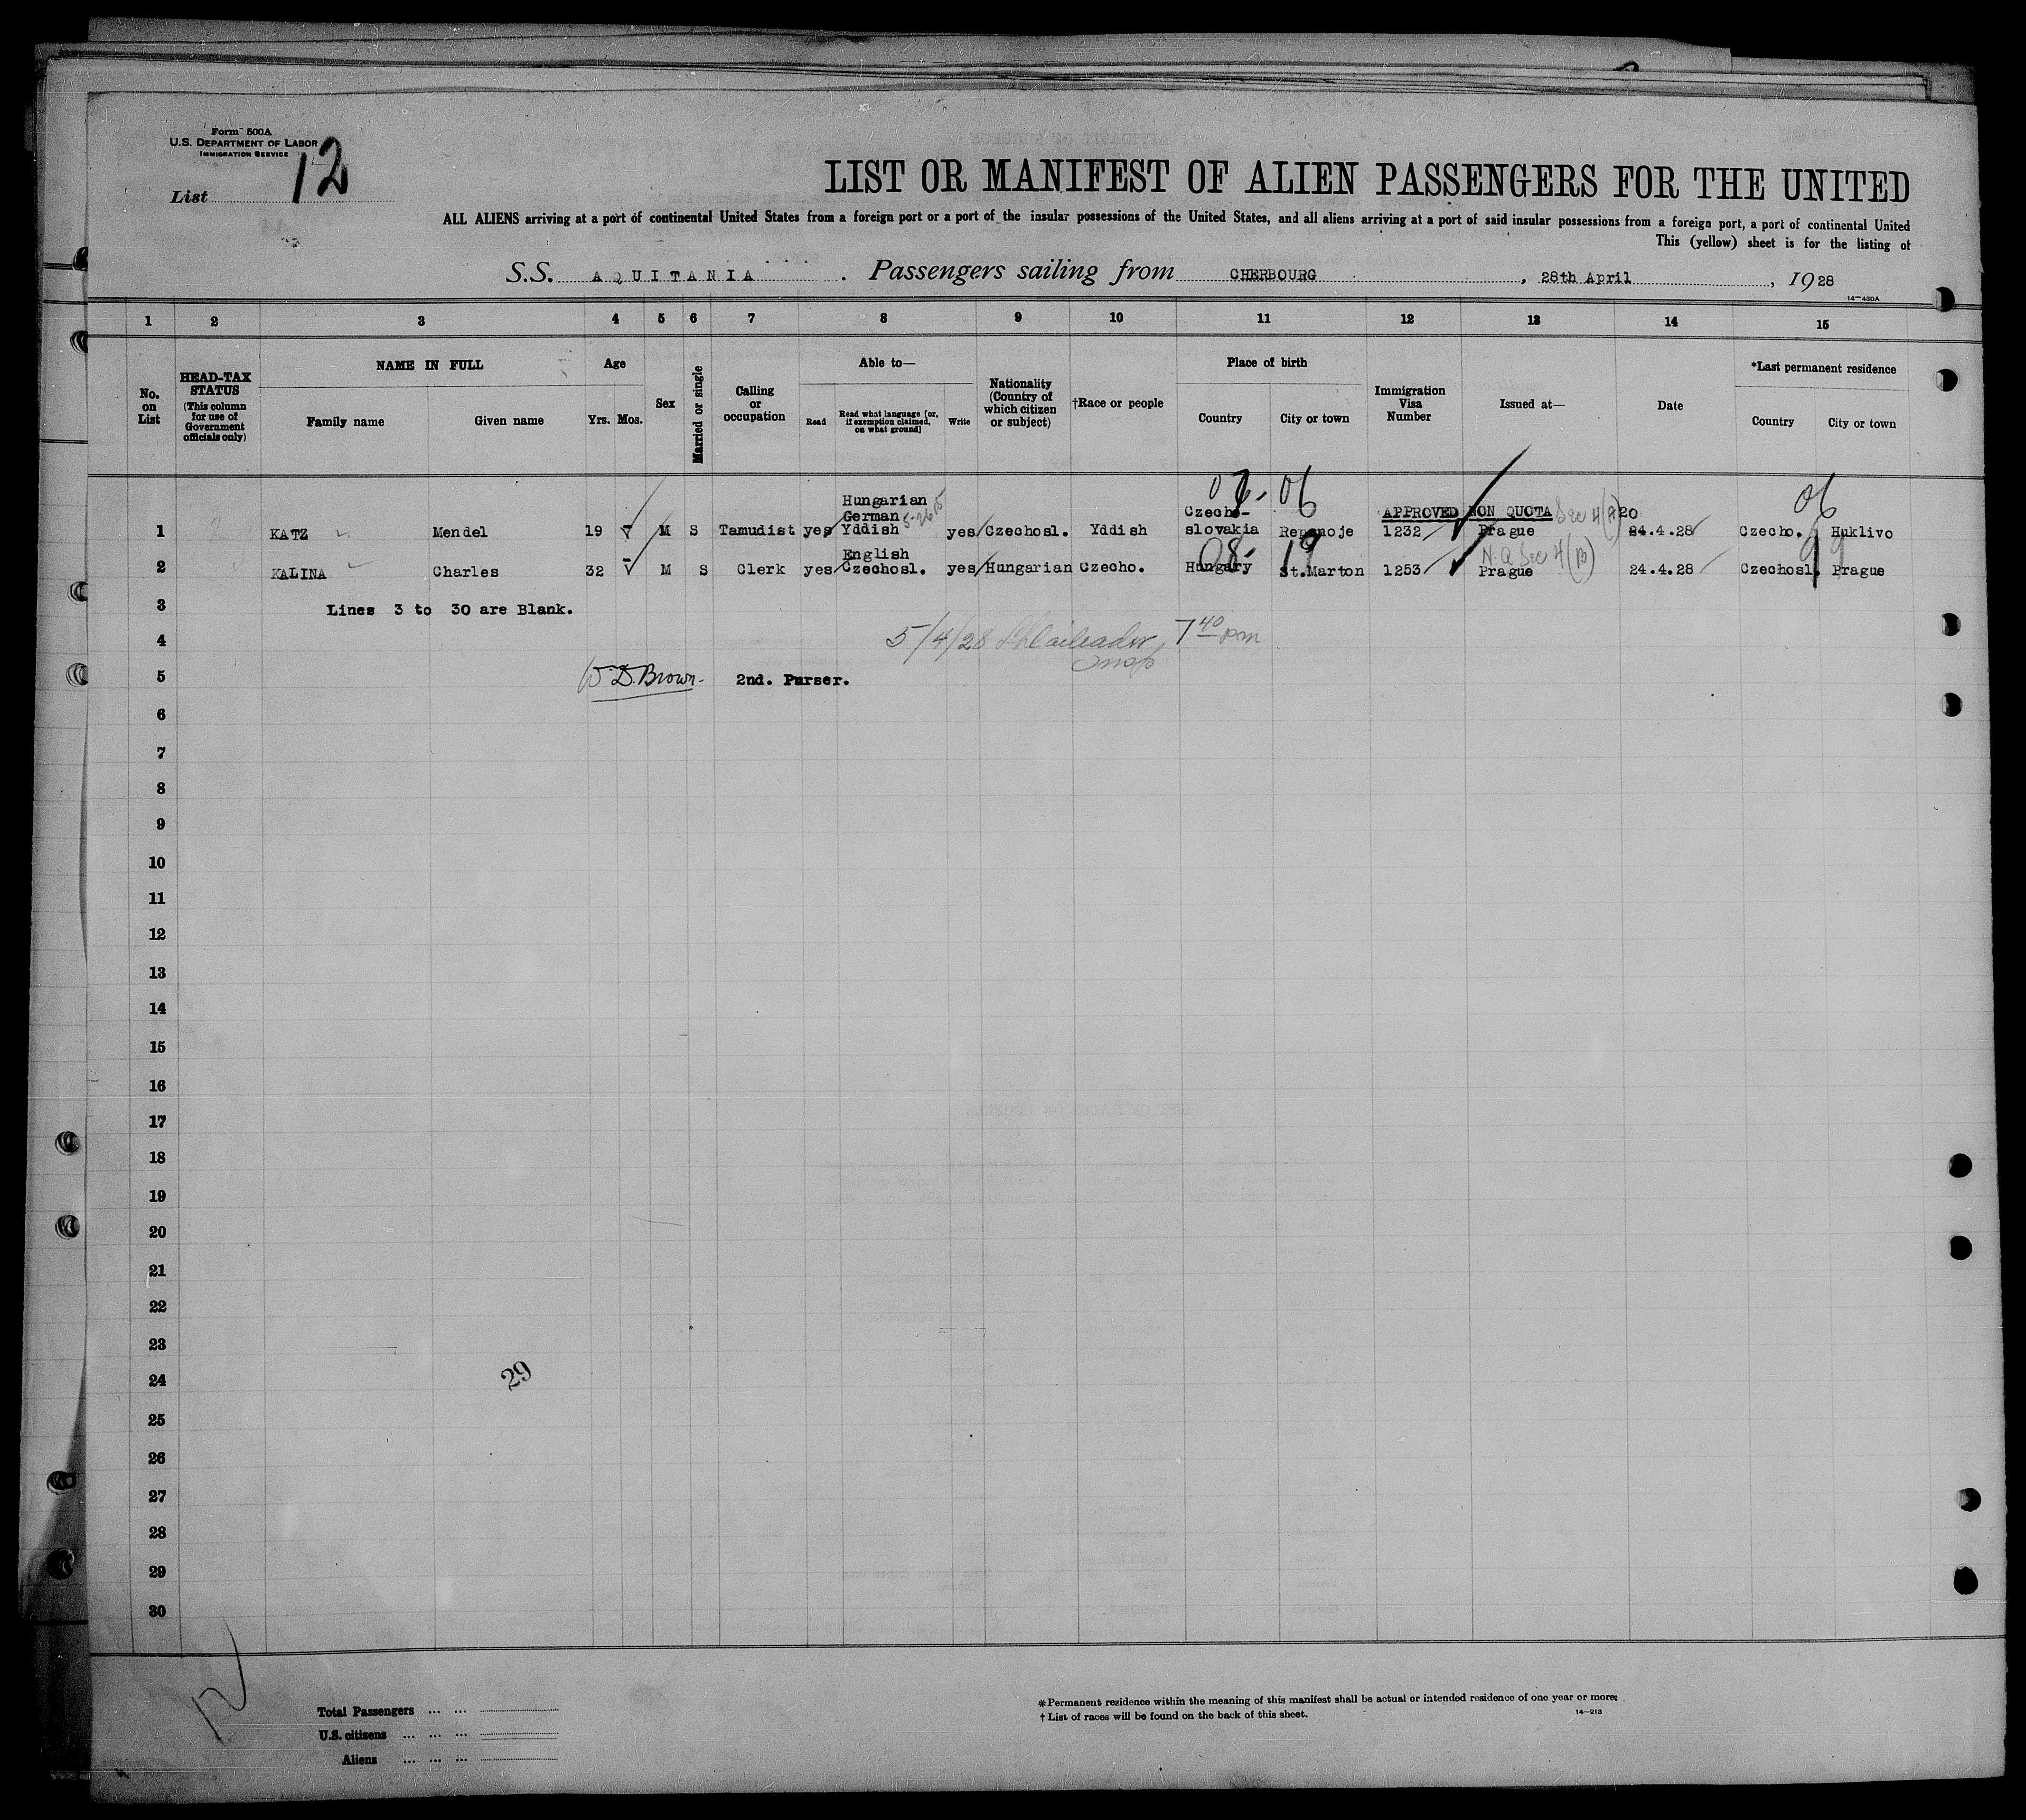 Form 500A
U.S. DEPARTMENT OF LABOR
IMMIGRATION SERVICE
List 12
LIST OR MANIFEST OF ALIEN PASSENGERS FOR THE UNITED
ALL ALIENS arriving at a port of continental United States from a foreign port or a port of the insular possessions of the United States, and all aliens arriving at a port of said insular possessions from a foreign port, a port of continental United
This (yellow) sheet is for the listing of
S.S. AQUITANIA. Passengers sailing from CHERBOURG, 28th April, 1928
14—430A
1 2 3 4 5 6 7 8 9 10 11 12 13 14 15
No. on List
HEAD-TAX STATUS (This column for use of Government officials only)
NAME IN FULL
Family name Given name
Age
Yrs. Mos.
Sex
Married or single
Calling or occupation
Able to—
Read
Read what language [or, if exemption claimed, on what ground]
Write
Nationality (Country of which citizen or subject)
†Race or people
Place of birth
Country City or town
Immigration Visa Number
Issued at—
Date
*Last permanent residence
Country City or town
06 06
Hungarian
German 5-26
Czecho- APPROVED NON QUOTA Sec 4 20
1 KATZ Mendel 19 M S Tamudist yes Yddish yes Czechosl. Yddish slovakia Repenoje 1232 Prague 24.4.28 Czecho. Huklivo
English 08- 19 N.Q Sec 4 (B) 19
2 KALINA Charles 32 M S Clerk yes Czechosl. yes Hungarian Czecho. Hungary St.Marton 1253 Prague 24.4.28 Czechosl. Prague
3 Lines 3 to 30 are Blank.
4 5/4/28 7 40 pm
5 W D. Brown 2nd. Purser.
6
7
8
9
10
11
12
13
14
15
16
17
18
19
20
21
22
23
24 29
25
26
27
28
29
30
12
Total Passengers ... ...
U.S. citizens ... ... ...
Aliens ... ... ...
*Permanent residence within the meaning of this manifest shall be actual or intended residence of one year or more.
† List of races will be found on the back of this sheet.
14—213